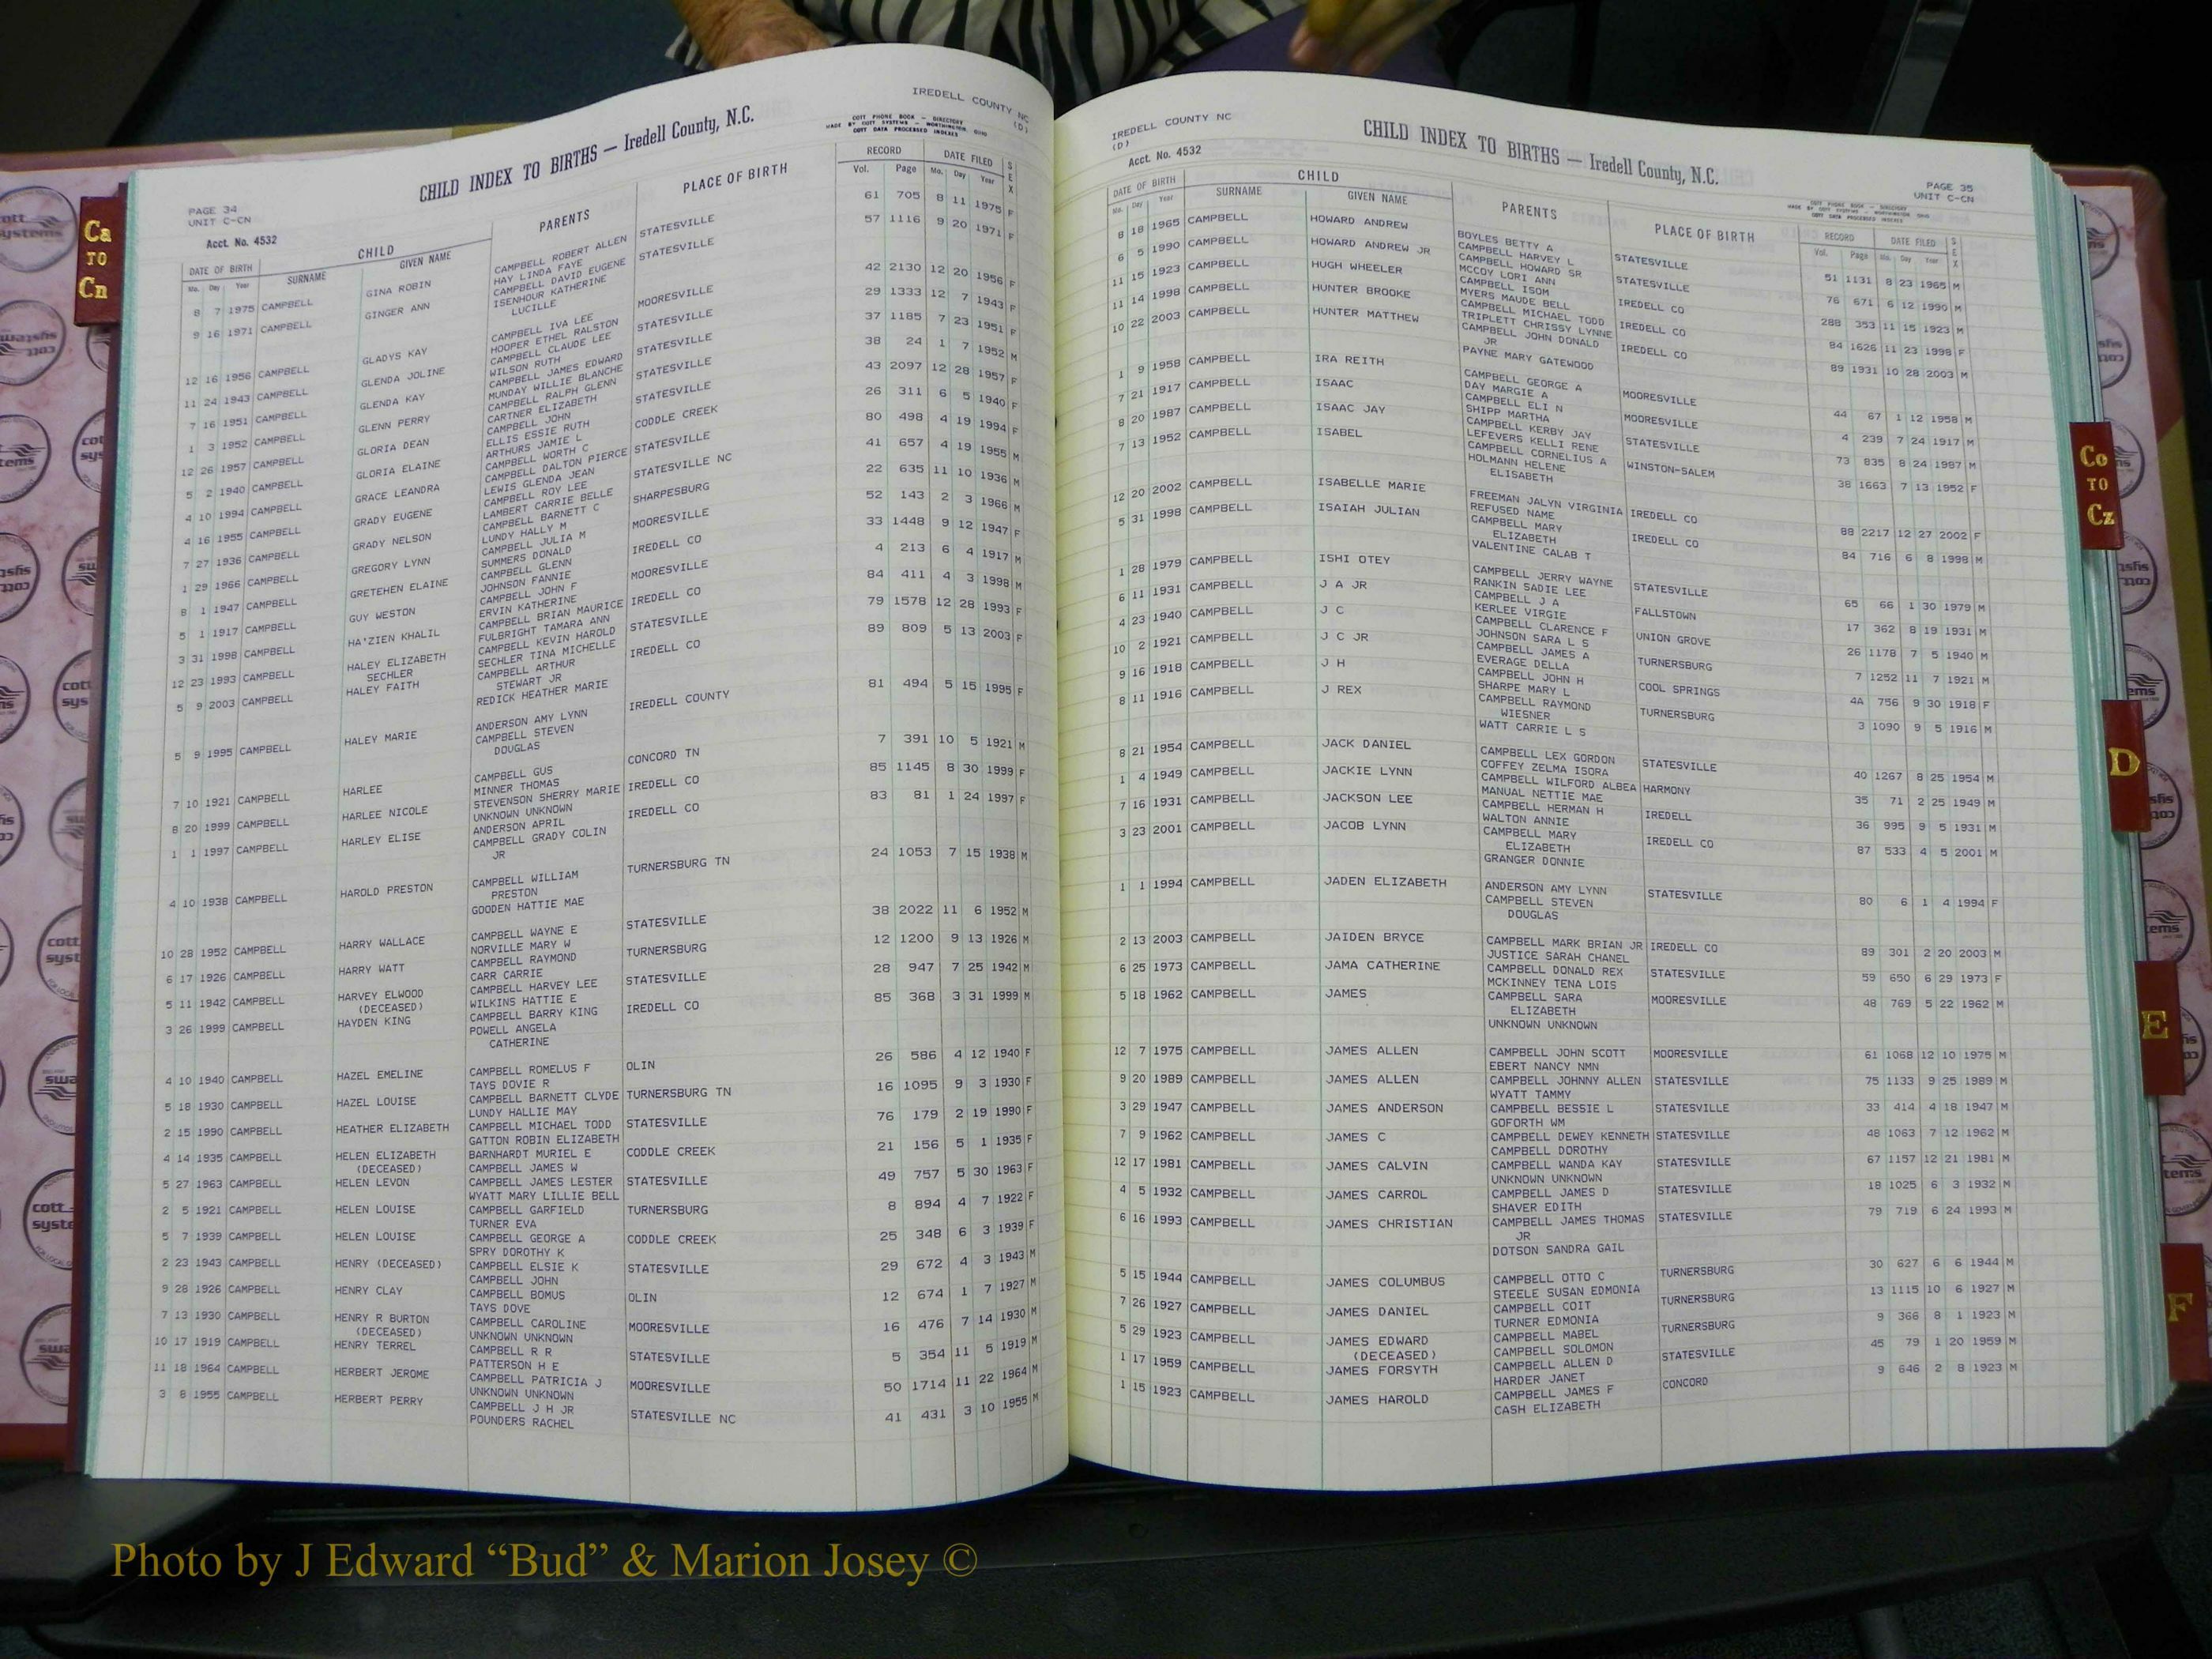 IREDELL COUNTY NC
(D)
COTT PHONE BOOK — DIRECTORY
MADE BY COTT SYSTEMS — WORTHINGTON, OHIO
COTT DATA PROCESSED INDEXES
CHILD INDEX TO BIRTHS — Iredell County, N.C.
PAGE 34
UNIT C-CN
Acct. No. 4532
DATE OF BIRTH CHILD PARENTS PLACE OF BIRTH RECORD DATE FILED SEX
Mo. Day Year SURNAME GIVEN NAME Vol. Page Mo. Day Year
8 7 1975 CAMPBELL GINA ROBIN CAMPBELL ROBERT ALLEN STATESVILLE 61 705 8 11 1975 F
HAY LINDA FAYE
9 16 1971 CAMPBELL GINGER ANN CAMPBELL DAVID EUGENE STATESVILLE 57 1116 9 20 1971 F
ISENHOUR KATHERINE
LUCILLE
12 16 1956 CAMPBELL GLADYS KAY CAMPBELL IVA LEE MOORESVILLE 42 2130 12 20 1956 F
HOOPER ETHEL RALSTON
11 24 1943 CAMPBELL GLENDA JOLINE CAMPBELL CLAUDE LEE STATESVILLE 29 1333 12 7 1943 F
WILSON RUTH
7 16 1951 CAMPBELL GLENDA KAY CAMPBELL JAMES EDWARD STATESVILLE 37 1185 7 23 1951 F
MUNDAY WILLIE BLANCHE
1 3 1952 CAMPBELL GLENN PERRY CAMPBELL RALPH GLENN STATESVILLE 38 24 1 7 1952 M
CARTNER ELIZABETH
12 26 1957 CAMPBELL GLORIA DEAN CAMPBELL JOHN STATESVILLE 43 2097 12 28 1957 F
ELLIS ESSIE RUTH
5 2 1940 CAMPBELL GLORIA ELAINE ARTHURS JAMIE L CODDLE CREEK 26 311 6 5 1940 F
CAMPBELL WORTH C
4 10 1994 CAMPBELL GRACE LEANDRA CAMPBELL DALTON PIERCE STATESVILLE 80 498 4 19 1994 F
LEWIS GLENDA JEAN
4 16 1955 CAMPBELL GRADY EUGENE CAMPBELL ROY LEE STATESVILLE NC 41 657 4 19 1955 M
LAMBERT CARRIE BELLE
7 27 1936 CAMPBELL GRADY NELSON CAMPBELL BARNETT C SHARPESBURG 22 635 11 10 1936 M
LUNDY HALLY M
1 29 1966 CAMPBELL GREGORY LYNN CAMPBELL JULIA M MOORESVILLE 52 143 2 3 1966 M
SUMMERS DONALD
8 1 1947 CAMPBELL GRETEHEN ELAINE CAMPBELL GLENN IREDELL CO 33 1448 9 12 1947 F
JOHNSON FANNIE
5 1 1917 CAMPBELL GUY WESTON CAMPBELL JOHN F MOORESVILLE 4 213 6 4 1917 M
ERVIN KATHERINE
3 31 1998 CAMPBELL HA'ZIEN KHALIL CAMPBELL BRIAN MAURICE IREDELL CO 84 411 4 3 1998 M
FULBRIGHT TAMARA ANN
12 23 1993 CAMPBELL HALEY ELIZABETH CAMPBELL KEVIN HAROLD STATESVILLE 79 1578 12 28 1993 F
SECHLER SECHLER TINA MICHELLE
5 9 2003 CAMPBELL HALEY FAITH CAMPBELL ARTHUR IREDELL CO 89 809 5 13 2003 F
STEWART JR
REDICK HEATHER MARIE
5 9 1995 CAMPBELL HALEY MARIE ANDERSON AMY LYNN IREDELL COUNTY 81 494 5 15 1995 F
CAMPBELL STEVEN
DOUGLAS
7 10 1921 CAMPBELL HARLEE CAMPBELL GUS CONCORD TN 7 391 10 5 1921 M
MINNER THOMAS
8 20 1999 CAMPBELL HARLEE NICOLE STEVENSON SHERRY MARIE IREDELL CO 85 1145 8 30 1999 F
UNKNOWN UNKNOWN
1 1 1997 CAMPBELL HARLEY ELISE ANDERSON APRIL IREDELL CO 83 81 1 24 1997 F
CAMPBELL GRADY COLIN
JR
4 10 1938 CAMPBELL HAROLD PRESTON CAMPBELL WILLIAM TURNERSBURG TN 24 1053 7 15 1938 M
PRESTON
GOODEN HATTIE MAE
10 28 1952 CAMPBELL HARRY WALLACE CAMPBELL WAYNE E STATESVILLE 38 2022 11 6 1952 M
NORVILLE MARY W
6 17 1926 CAMPBELL HARRY WATT CAMPBELL RAYMOND TURNERSBURG 12 1200 9 13 1926 M
CARR CARRIE
5 11 1942 CAMPBELL HARVEY ELWOOD CAMPBELL HARVEY LEE STATESVILLE 28 947 7 25 1942 M
(DECEASED) WILKINS HATTIE E
3 26 1999 CAMPBELL HAYDEN KING CAMPBELL BARRY KING IREDELL CO 85 368 3 31 1999 M
POWELL ANGELA
CATHERINE
4 10 1940 CAMPBELL HAZEL EMELINE CAMPBELL ROMELUS F OLIN 26 586 4 12 1940 F
TAYS DOVIE R
5 18 1930 CAMPBELL HAZEL LOUISE CAMPBELL BARNETT CLYDE TURNERSBURG TN 16 1095 9 3 1930 F
LUNDY HALLIE MAY
2 15 1990 CAMPBELL HEATHER ELIZABETH CAMPBELL MICHAEL TODD STATESVILLE 76 179 2 19 1990 F
GATTON ROBIN ELIZABETH
4 14 1935 CAMPBELL HELEN ELIZABETH BARNHARDT MURIEL E CODDLE CREEK 21 156 5 1 1935 F
(DECEASED) CAMPBELL JAMES W
5 27 1963 CAMPBELL HELEN LEVON CAMPBELL JAMES LESTER STATESVILLE 49 757 5 30 1963 F
WYATT MARY LILLIE BELL
2 5 1921 CAMPBELL HELEN LOUISE CAMPBELL GARFIELD TURNERSBURG 8 894 4 7 1922 F
TURNER EVA
5 7 1939 CAMPBELL HELEN LOUISE CAMPBELL GEORGE A CODDLE CREEK 25 348 6 3 1939 F
SPRY DOROTHY K
2 23 1943 CAMPBELL HENRY (DECEASED) CAMPBELL ELSIE K STATESVILLE 29 672 4 3 1943 M
CAMPBELL JOHN
9 28 1926 CAMPBELL HENRY CLAY CAMPBELL BOMUS OLIN 12 674 1 7 1927 M
TAYS DOVE
7 13 1930 CAMPBELL HENRY R BURTON CAMPBELL CAROLINE MOORESVILLE 16 476 7 14 1930 M
(DECEASED) UNKNOWN UNKNOWN
10 17 1919 CAMPBELL HENRY TERREL CAMPBELL R R STATESVILLE 5 354 11 5 1919 M
PATTERSON H E
11 18 1964 CAMPBELL HERBERT JEROME CAMPBELL PATRICIA J MOORESVILLE 50 1714 11 22 1964 M
UNKNOWN UNKNOWN
3 8 1955 CAMPBELL HERBERT PERRY CAMPBELL J H JR STATESVILLE NC 41 431 3 10 1955 M
POUNDERS RACHEL
IREDELL COUNTY NC
(D)
Acct. No. 4532
CHILD INDEX TO BIRTHS — Iredell County, N.C.
PAGE 35
UNIT C-CN
COTT PHONE BOOK — DIRECTORY
MADE BY COTT SYSTEMS — WORTHINGTON, OHIO
COTT DATA PROCESSED INDEXES
DATE OF BIRTH CHILD PARENTS PLACE OF BIRTH RECORD DATE FILED SEX
Mo. Day Year SURNAME GIVEN NAME Vol. Page Mo. Day Year
8 18 1965 CAMPBELL HOWARD ANDREW BOYLES BETTY A STATESVILLE 51 1131 8 23 1965 M
CAMPBELL HARVEY L
6 5 1990 CAMPBELL HOWARD ANDREW JR CAMPBELL HOWARD SR STATESVILLE 76 671 6 12 1990 M
MCCOY LORI ANN
11 15 1923 CAMPBELL HUGH WHEELER CAMPBELL ISOM IREDELL CO 288 353 11 15 1923 M
MYERS MAUDE BELL
11 14 1998 CAMPBELL HUNTER BROOKE CAMPBELL MICHAEL TODD IREDELL CO 84 1626 11 23 1998 F
TRIPLETT CHRISSY LYNNE
10 22 2003 CAMPBELL HUNTER MATTHEW CAMPBELL JOHN DONALD IREDELL CO 89 1931 10 28 2003 M
JR
PAYNE MARY GATEWOOD
1 9 1958 CAMPBELL IRA REITH CAMPBELL GEORGE A MOORESVILLE 44 67 1 12 1958 M
DAY MARGIE A
7 21 1917 CAMPBELL ISAAC CAMPBELL ELI N MOORESVILLE 4 239 7 24 1917 M
SHIPP MARTHA
8 20 1987 CAMPBELL ISAAC JAY CAMPBELL KERBY JAY STATESVILLE 73 835 8 24 1987 M
LEFEVERS KELLI RENE
7 13 1952 CAMPBELL ISABEL CAMPBELL CORNELIUS A WINSTON-SALEM 38 1663 7 13 1952 F
HOLMANN HELENE
ELISABETH
12 20 2002 CAMPBELL ISABELLE MARIE FREEMAN JALYN VIRGINIA IREDELL CO 88 2217 12 27 2002 F
REFUSED NAME
5 31 1998 CAMPBELL ISAIAH JULIAN CAMPBELL MARY IREDELL CO 84 716 6 8 1998 M
ELIZABETH
VALENTINE CALAB T
1 28 1979 CAMPBELL ISHI OTEY CAMPBELL JERRY WAYNE STATESVILLE 65 66 1 30 1979 M
RANKIN SADIE LEE
6 11 1931 CAMPBELL J A JR CAMPBELL J A FALLSTOWN 17 362 8 19 1931 M
KERLEE VIRGIE
4 23 1940 CAMPBELL J C CAMPBELL CLARENCE F UNION GROVE 26 1178 7 5 1940 M
JOHNSON SARA L S
10 2 1921 CAMPBELL J C JR CAMPBELL JAMES A TURNERSBURG 7 1252 11 7 1921 M
EVERAGE DELLA
9 16 1918 CAMPBELL J H CAMPBELL JOHN H COOL SPRINGS 4A 756 9 30 1918 F
SHARPE MARY L
8 11 1916 CAMPBELL J REX CAMPBELL RAYMOND TURNERSBURG 3 1090 9 5 1916 M
WIESNER
WATT CARRIE L S
8 21 1954 CAMPBELL JACK DANIEL CAMPBELL LEX GORDON STATESVILLE 40 1267 8 25 1954 M
COFFEY ZELMA ISORA
1 4 1949 CAMPBELL JACKIE LYNN CAMPBELL WILFORD ALBEA HARMONY 35 71 2 25 1949 M
MANUAL NETTIE MAE
7 16 1931 CAMPBELL JACKSON LEE CAMPBELL HERMAN H IREDELL 36 995 9 5 1931 M
WALTON ANNIE
3 23 2001 CAMPBELL JACOB LYNN CAMPBELL MARY IREDELL CO 87 533 4 5 2001 M
ELIZABETH
GRANGER DONNIE
1 1 1994 CAMPBELL JADEN ELIZABETH ANDERSON AMY LYNN STATESVILLE 80 6 1 4 1994 F
CAMPBELL STEVEN
DOUGLAS
2 13 2003 CAMPBELL JAIDEN BRYCE CAMPBELL MARK BRIAN JR IREDELL CO 89 301 2 20 2003 M
JUSTICE SARAH CHANEL
6 25 1973 CAMPBELL JAMA CATHERINE CAMPBELL DONALD REX STATESVILLE 59 650 6 29 1973 F
MCKINNEY TENA LOIS
5 18 1962 CAMPBELL JAMES CAMPBELL SARA MOORESVILLE 48 769 5 22 1962 M
ELIZABETH
UNKNOWN UNKNOWN
12 7 1975 CAMPBELL JAMES ALLEN CAMPBELL JOHN SCOTT MOORESVILLE 61 1068 12 10 1975 M
EBERT NANCY NMN
9 20 1989 CAMPBELL JAMES ALLEN CAMPBELL JOHNNY ALLEN STATESVILLE 75 1133 9 25 1989 M
WYATT TAMMY
3 29 1947 CAMPBELL JAMES ANDERSON CAMPBELL BESSIE L STATESVILLE 33 414 4 18 1947 M
GOFORTH WM
7 9 1962 CAMPBELL JAMES C CAMPBELL DEWEY KENNETH STATESVILLE 48 1063 7 12 1962 M
CAMPBELL DOROTHY
12 17 1981 CAMPBELL JAMES CALVIN CAMPBELL WANDA KAY STATESVILLE 67 1157 12 21 1981 M
UNKNOWN UNKNOWN
4 5 1932 CAMPBELL JAMES CARROL CAMPBELL JAMES D STATESVILLE 18 1025 6 3 1932 M
SHAVER EDITH
6 16 1993 CAMPBELL JAMES CHRISTIAN CAMPBELL JAMES THOMAS STATESVILLE 79 719 6 24 1993 M
JR
DOTSON SANDRA GAIL
5 15 1944 CAMPBELL JAMES COLUMBUS CAMPBELL OTTO C TURNERSBURG 30 627 6 6 1944 M
STEELE SUSAN EDMONIA
7 26 1927 CAMPBELL JAMES DANIEL CAMPBELL COIT TURNERSBURG 13 1115 10 6 1927 M
TURNER EDMONIA
5 29 1923 CAMPBELL JAMES EDWARD CAMPBELL MABEL TURNERSBURG 9 366 8 1 1923 M
(DECEASED) CAMPBELL SOLOMON
1 17 1959 CAMPBELL JAMES FORSYTH CAMPBELL ALLEN D STATESVILLE 45 79 1 20 1959 M
HARDER JANET
1 15 1923 CAMPBELL JAMES HAROLD CAMPBELL JAMES F CONCORD 9 646 2 8 1923 M
CASH ELIZABETH
Ca
TO
Cn
Co
TO
Cz
D
E
F
cott
systems
Photo by J Edward “Bud” & Marion Josey ©